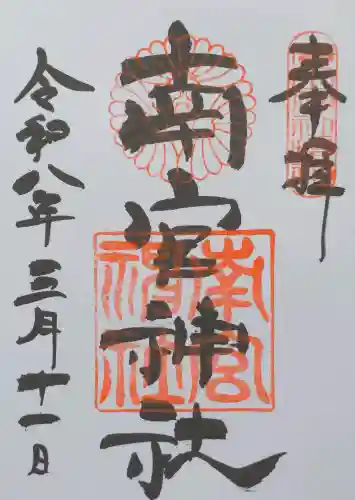 奉拝
南宮神社
令和八年三月十一日
南宮
神社